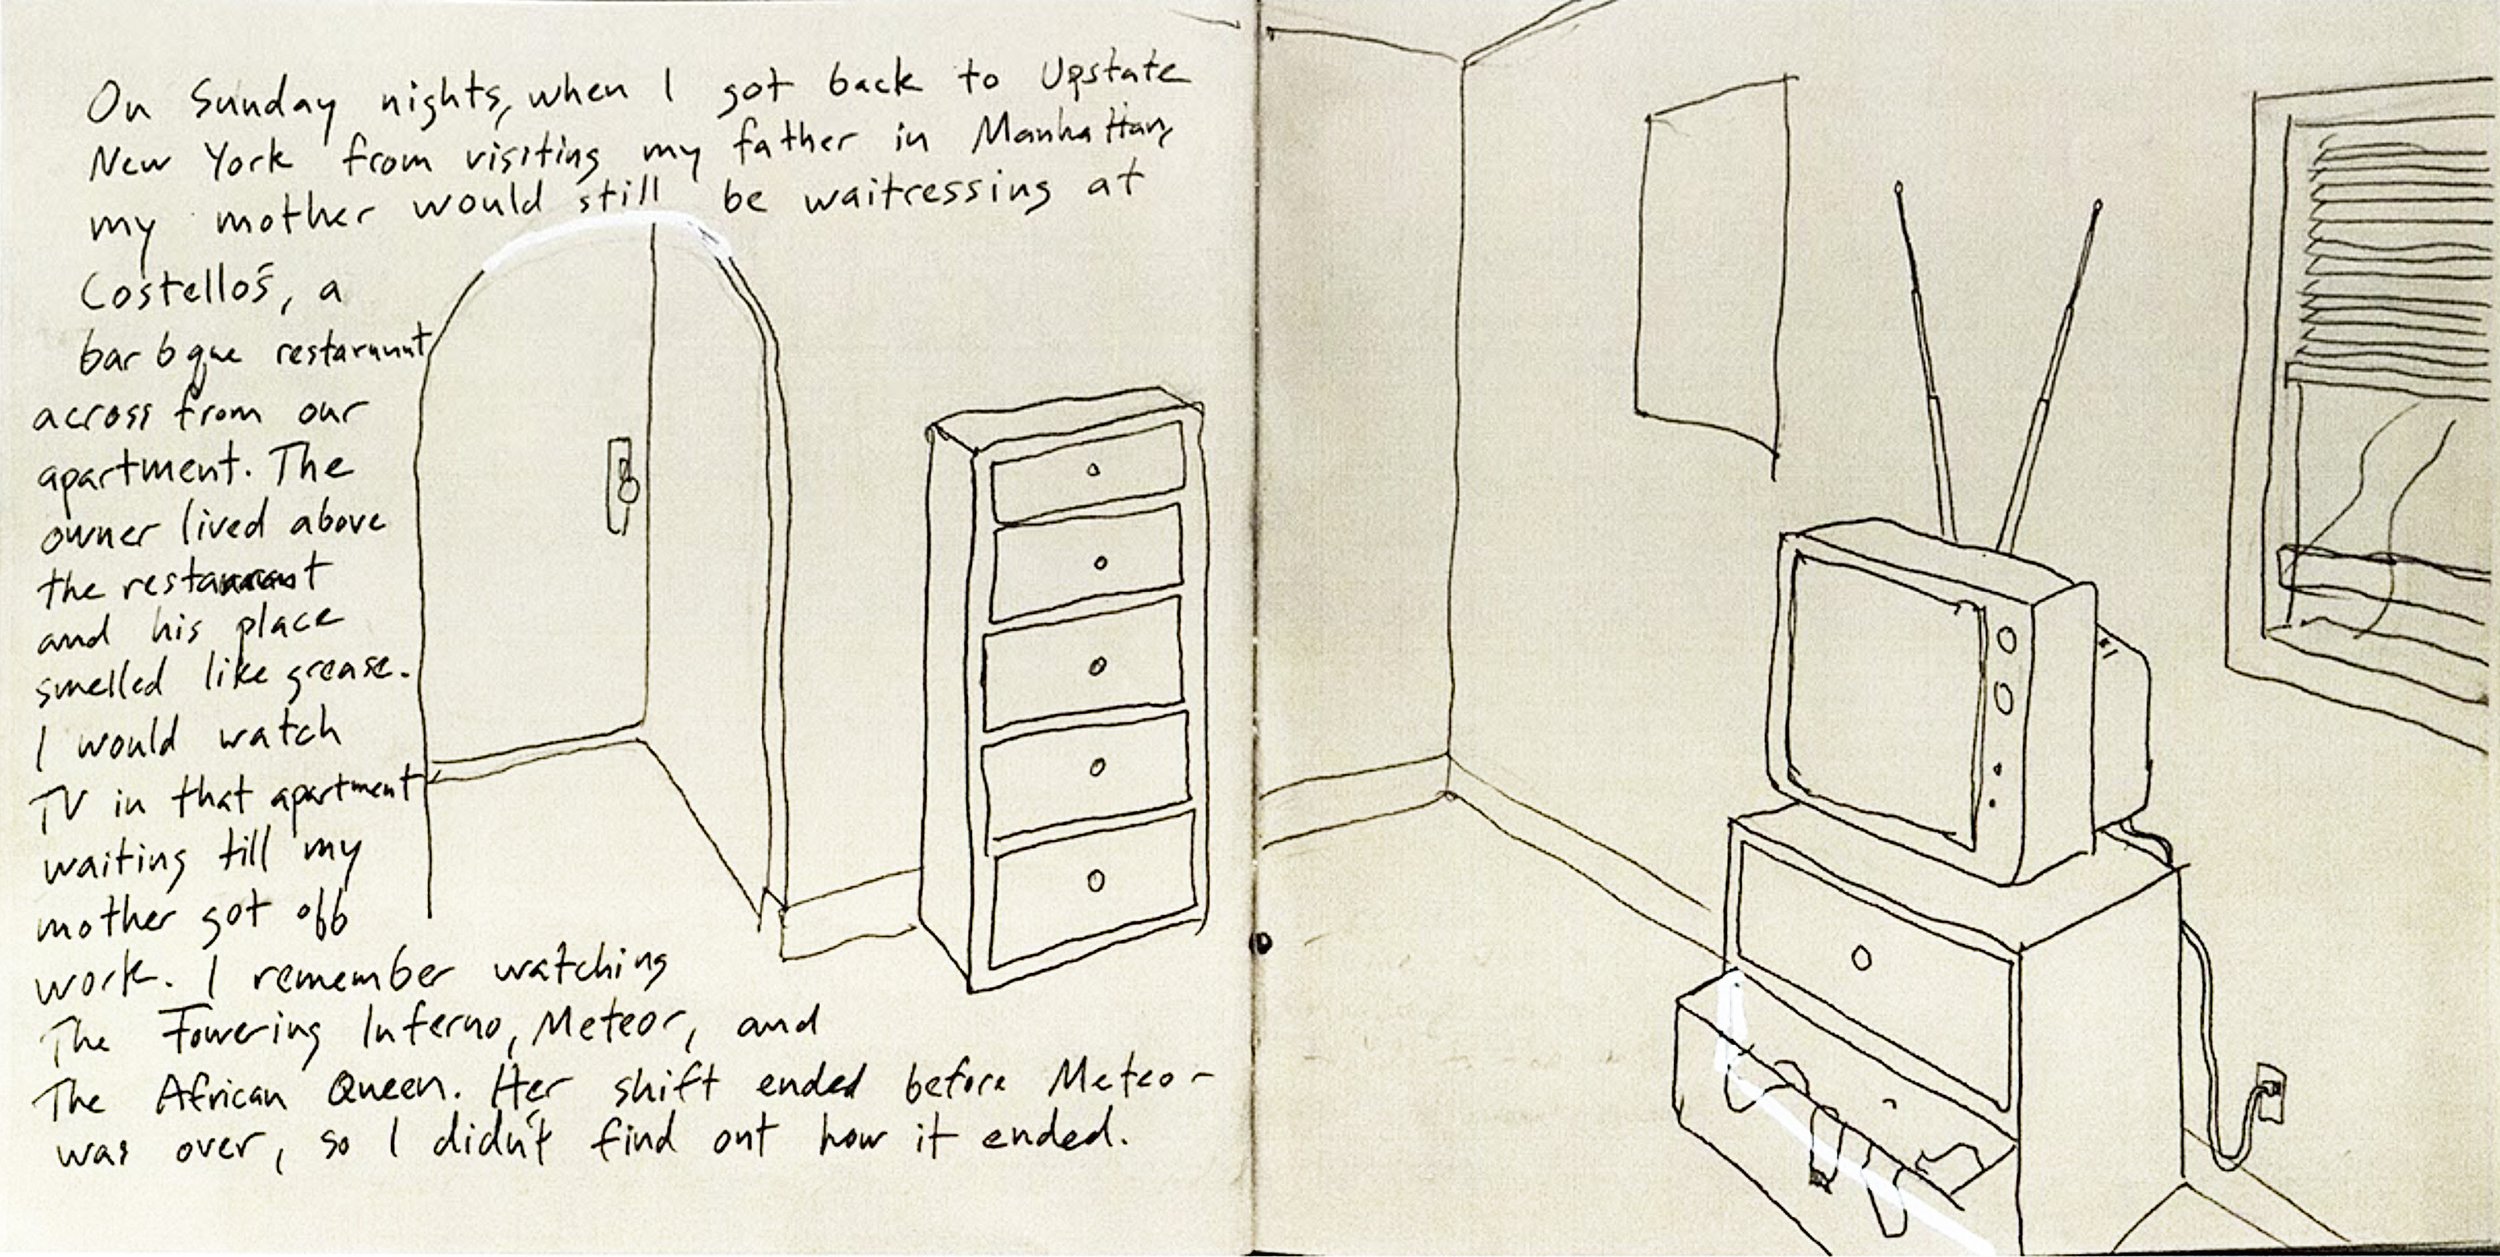 On Sunday nights, when I got back to Upstate
New York from visiting my father in Manhattan,
my mother would still be waitressing at
Costello's, a
barbque restaruunt
across from our
apartment. The
owner lived above
the restaraunt
and his place
smelled like grease.
I would watch
TV in that apartment
waiting till my
mother got off
work. I remember watching
The Towering Inferno, Meteor, and
The African Queen. Her shift ended before Meteor
was over, so I didn't find out how it ended.